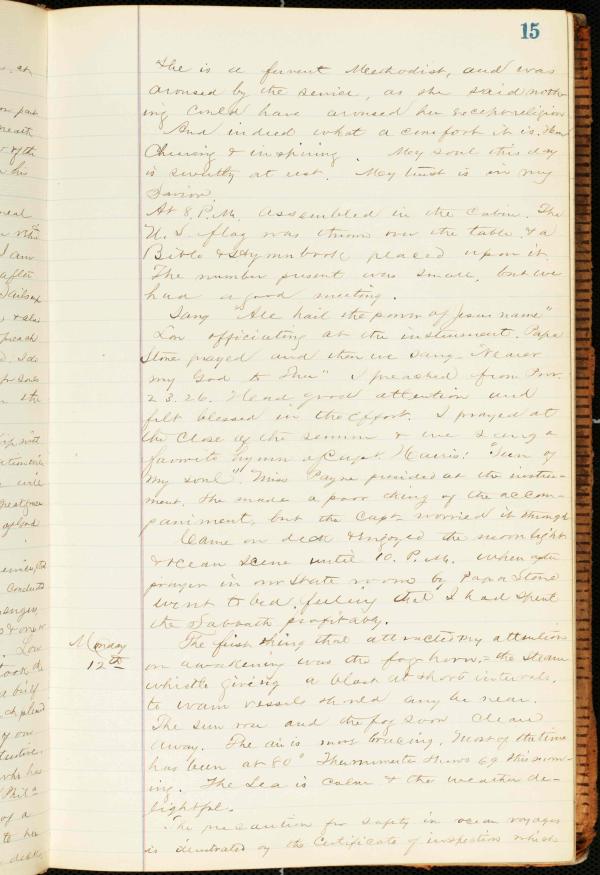 15
She is a fervent Methodist, and was
aroused by the service, as she said noth-
ing could have aroused her except religion
And indeed what a comfort it is. How
Cheering & inspiring. My soul this day
is sweetly at rest. My trust is in my
Savior.
At 8, P.M. assembled in the Cabin. The
U. S. flag was thrown over the table & a
Bible & Hymnbook placed upon it.
The number present was small, but we
had a good meeting.
Sang "All hail the power of Jesus name"
Lou officiating at the instrument. Papa
Stone prayed and then we sang "Nearer
my God to Thee" I preached from Prov.
23.26. Had good attention and
felt blessed in the effort. I prayed at
the close of the sermon & we sang a
favorite hymn of Capt. Harris: "Sun of
my soul". Miss Payne presided at the instru-
ment. She made a poor thing of the accom-
paniment, but the Capt. worried it through
Came on deck & enjoyed the moonlight
& ocean scene until 10. P.M. when after
prayer in our State room by Papa Stone
went to bed, feeling that I had spent
the Sabbath profitably.
Monday
12th
The first thing that attracted my attention
on awakening was the fog horn,= the steam
whistle giving a blast at short intervals,
to warn vessels should any be near.
The sun rose and the fog soon cleared
away. The air is more bracing. Most of the time
has been at 80° Thermometer shows 69 this morn-
ing. The Sea is calm & the weather de-
lightful.
The precaution for safety in ocean voyages
is illustrated by the Certificate of inspection which